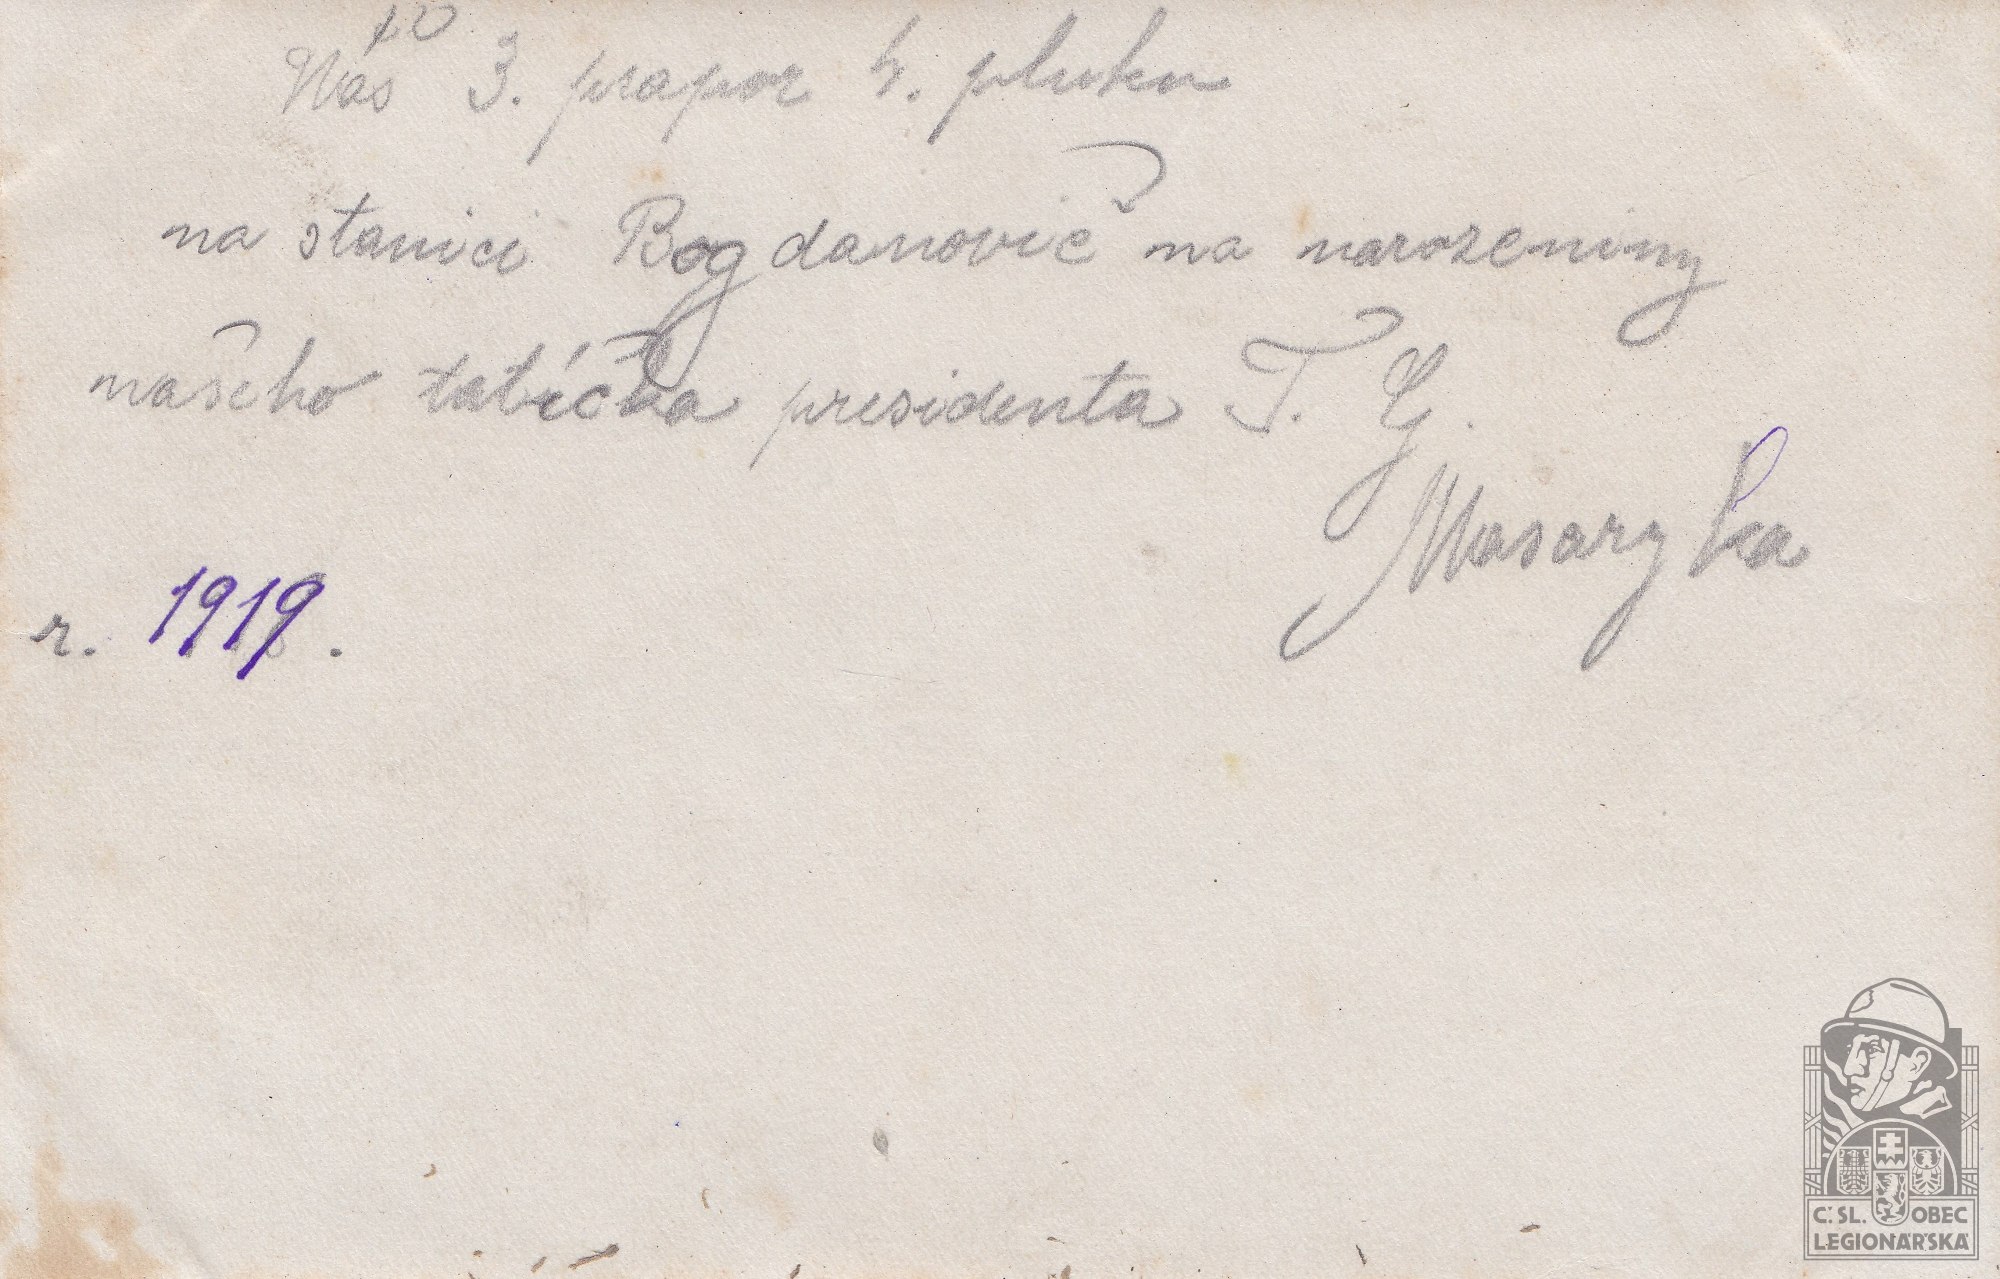 Náš 3. prapor 4. pluku
na stanici Bogdanovič na narozeniny
našeho tatíčka presidenta T. G.
Masaryka
r. 1919.
Č.SL. OBEC
LEGIONÁŘSKÁ